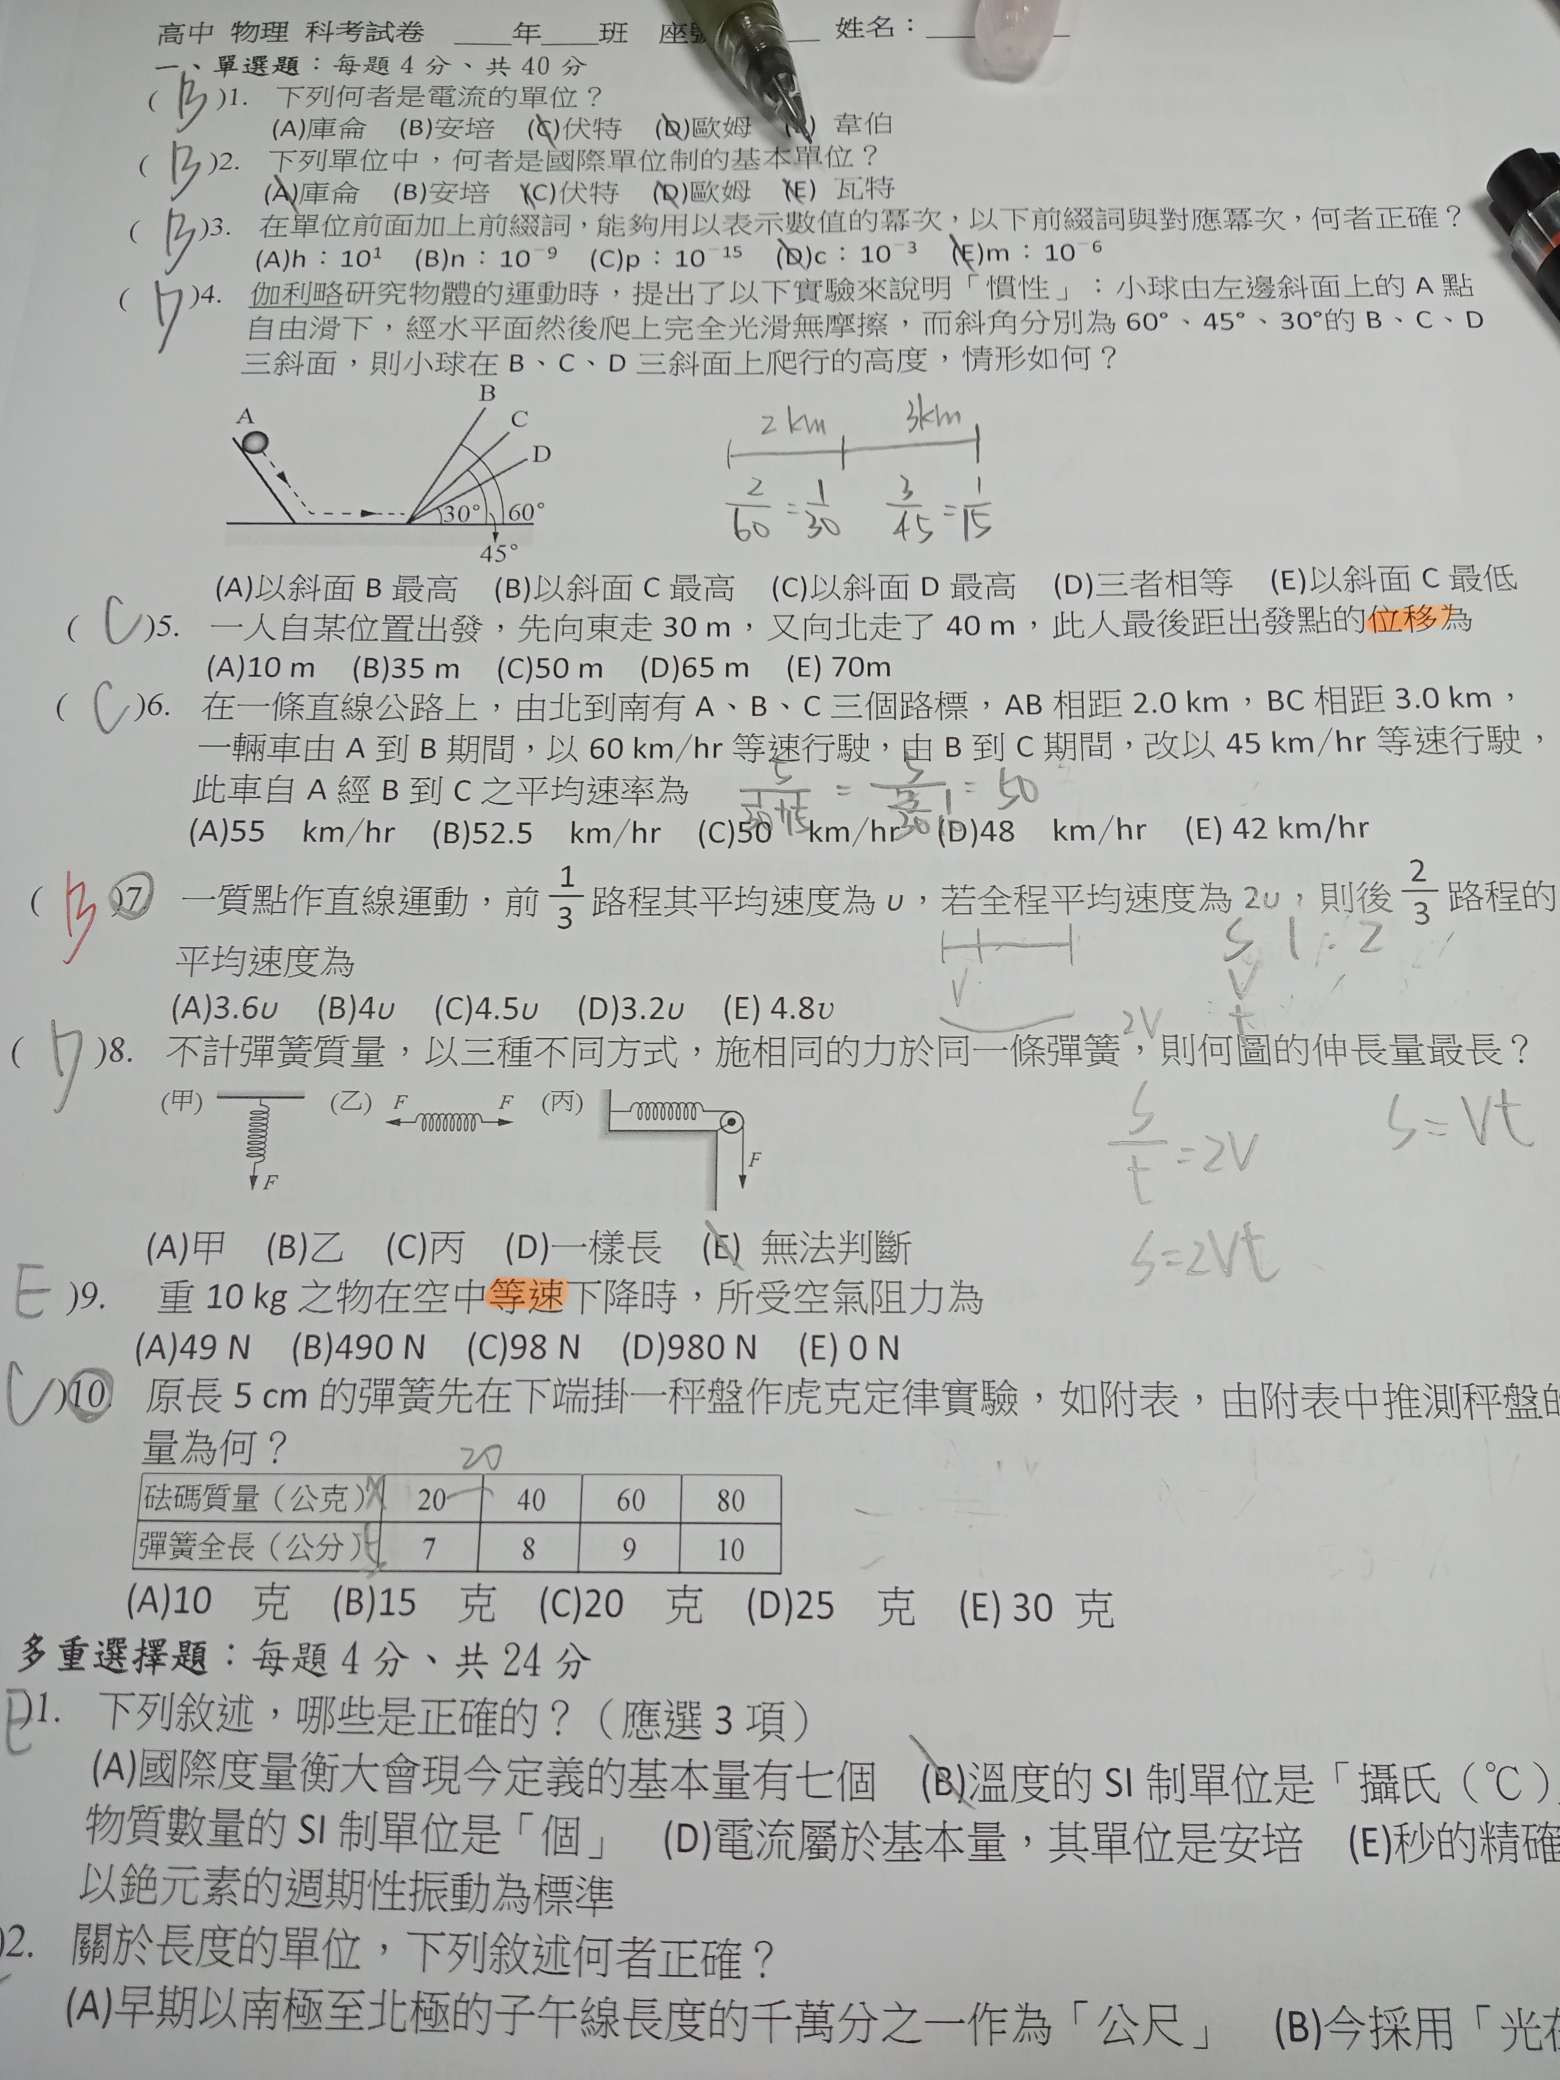 高中 物理 科考試卷 ____年____班 座 姓名：
一、單選題：每題 4 分、共 40 分
( B )1. 下列何者是電流的單位？
(A)庫侖 (B)安培 (C)伏特 (D)歐姆 韋伯
( B )2. 下列單位中，何者是國際單位制的基本單位？
(A)庫侖 (B)安培 (C)伏特 (D)歐姆 (E) 瓦特
( B )3. 在單位前面加上前綴詞，能夠用以表示數值的冪次，以下前綴詞與對應冪次，何者正確？
(A)h：10¹ (B)n：10⁻⁹ (C)p：10⁻¹⁵ (D)c：10⁻³ (E)m：10⁻⁶
( D )4. 伽利略研究物體的運動時，提出了以下實驗來說明「慣性」：小球由左邊斜面上的 A 點
自由滑下，經水平面然後爬上完全光滑無摩擦，而斜角分別為 60°、45°、30°的 B、C、D
三斜面，則小球在 B、C、D 三斜面上爬行的高度，情形如何？
A B C D 30° 60° 45°
2 km 3km
2/60 = 1/30 3/45 = 1/15
(A)以斜面 B 最高 (B)以斜面 C 最高 (C)以斜面 D 最高 (D)三者相等 (E)以斜面 C 最低
( C )5. 一人自某位置出發，先向東走 30 m，又向北走了 40 m，此人最後距出發點的位移為
(A)10 m (B)35 m (C)50 m (D)65 m (E) 70m
( C )6. 在一條直線公路上，由北到南有 A、B、C 三個路標，AB 相距 2.0 km，BC 相距 3.0 km，
一輛車由 A 到 B 期間，以 60 km/hr 等速行駛，由 B 到 C 期間，改以 45 km/hr 等速行駛，
此車自 A 經 B 到 C 之平均速率為
= 50
(A)55 km/hr (B)52.5 km/hr (C)50 km/hr (D)48 km/hr (E) 42 km/hr
( B )7. 一質點作直線運動，前 1/3 路程其平均速度為 υ，若全程平均速度為 2υ，則後 2/3 路程的
平均速度為
S 1 : 2
V
t
V 2V
(A)3.6υ (B)4υ (C)4.5υ (D)3.2υ (E) 4.8υ
( D )8. 不計彈簧質量，以三種不同方式，施相同的力於同一條彈簧，則何圖的伸長量最長？
(甲) F (乙) F F (丙) F
S/t = 2V S = Vt
S = 2Vt
(A)甲 (B)乙 (C)丙 (D)一樣長 (E) 無法判斷
E )9. 重 10 kg 之物在空中等速下降時，所受空氣阻力為
(A)49 N (B)490 N (C)98 N (D)980 N (E) 0 N
C )10. 原長 5 cm 的彈簧先在下端掛一秤盤作虎克定律實驗，如附表，由附表中推測秤盤的
量為何？
20
砝碼質量（公克） 20 40 60 80
彈簧全長（公分） 7 8 9 10
(A)10 克 (B)15 克 (C)20 克 (D)25 克 (E) 30 克
多重選擇題：每題 4 分、共 24 分
E )1. 下列敘述，哪些是正確的？（應選 3 項）
(A)國際度量衡大會現今定義的基本量有七個 (B)溫度的 SI 制單位是「攝氏（℃）
物質數量的 SI 制單位是「個」 (D)電流屬於基本量，其單位是安培 (E)秒的精確
以銫元素的週期性振動為標準
)2. 關於長度的單位，下列敘述何者正確？
(A)早期以南極至北極的子午線長度的千萬分之一作為「公尺」 (B)今採用「光在